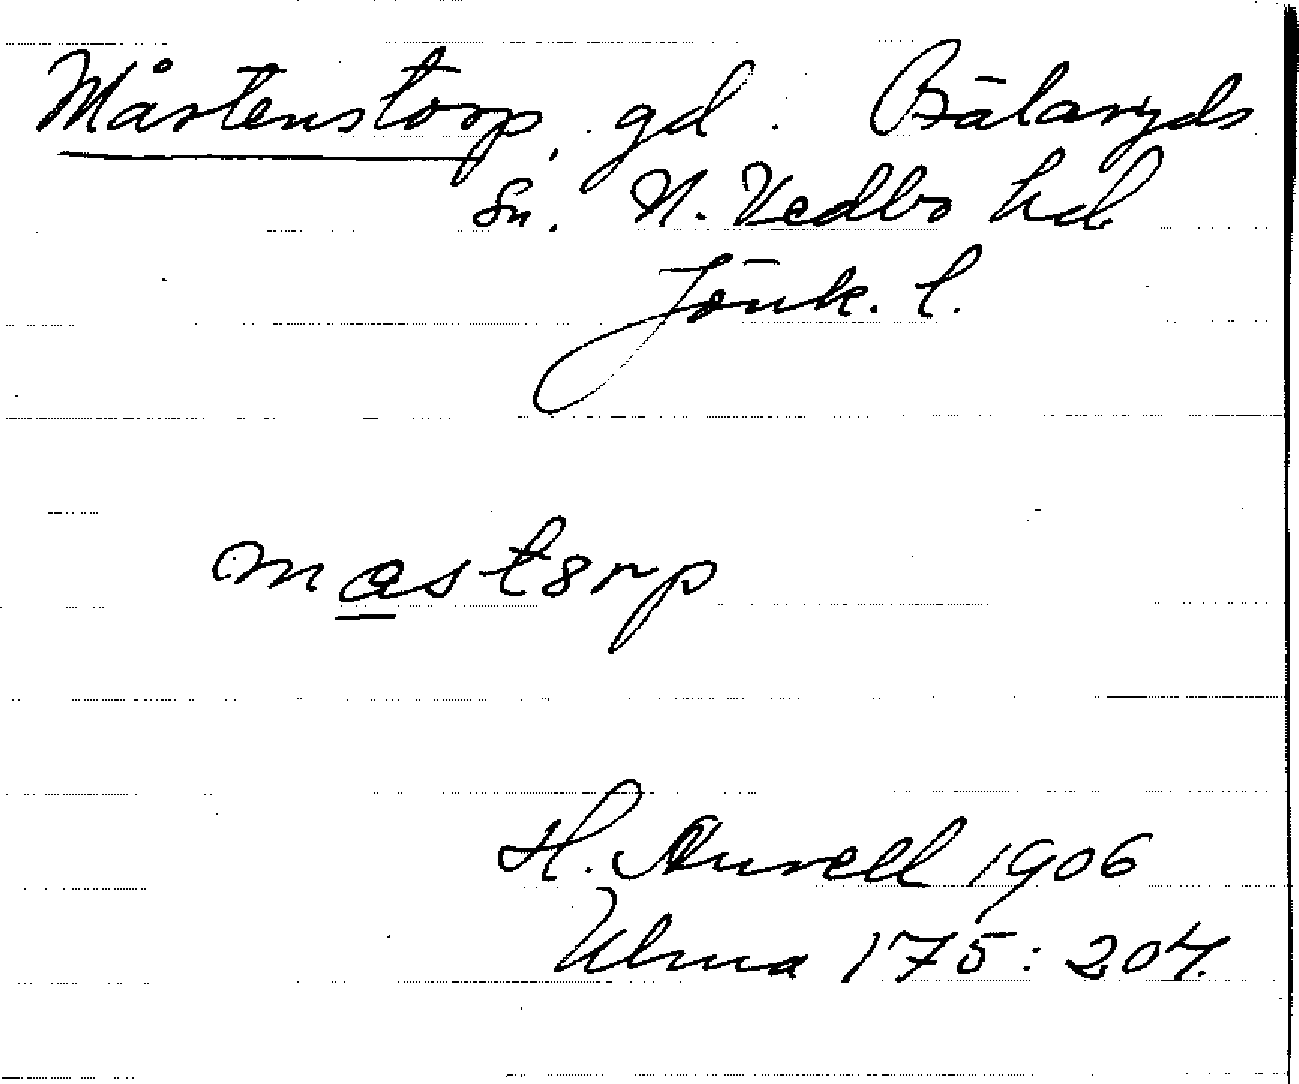 Mårtenstorp, gd. Bälaryds
sn. N. Vedbo hd
Jönk. l.
mastorp
H. Aurell 1906
Ulma 175:204.